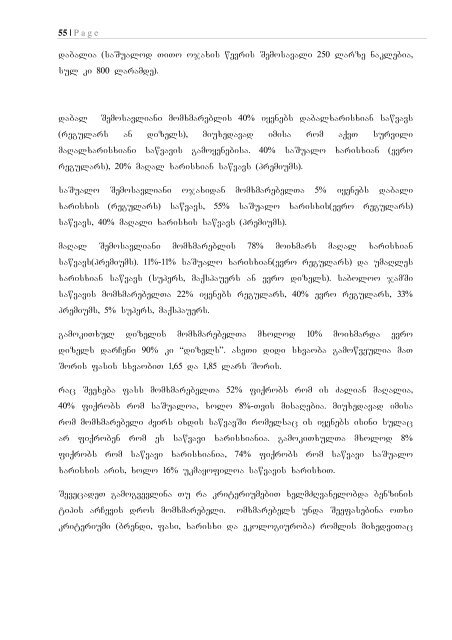 55 | P a g e
დაბალია (საშუალოდ თითო ოჯახის წევრის შემოსავალი 250 ლარზე ნაკლებია,
სულ კი 800 ლარამდე).
დაბალ შემოსავლიანი მომხმარებლის 40% იყენებს დაბალხარისხიან საწვავს
(რეგულარს ან დიზელს), მიუხედავად იმისა რომ აქვთ სურვილი
მაღალხარისხიანი საწვავის გამოყენებისა. 40% საშუალო ხარისხიან (ევრო
რეგულარს), 20% მაღალ ხარისხიან საწვავს (პრემიუმს).
საშუალო შემოსავლიანი ოჯახიდან მომხმარებელთა 5% იყენებს დაბალი
ხარისხის (რეგულარს) საწვავს, 55% საშუალო ხარისხის(ევრო რეგულარს)
საწვავს, 40% მაღალი ხარისხის საწვავს (პრემიუმს).
მაღალ შემოსავლიანი მომხმარებლის 78% მოიხმარს მაღალ ხარისხიან
საწვავს(პრემიუმს). 11%-11% საშუალო ხარისხიან(ევრო რეგულარს) და უმაღლეს
ხარისხიან საწვავს (სუპერს, მაქსპაუერს ან ევრო დიზელს). საბოლოო ჯამში
საწვავის მომხმარებელთა 22% იყენებს რეგულარს, 40% ევრო რეგულარს, 33%
პრემიუმს, 5% სუპერს, მაქსპაუერს.
გამოკითხულ დიზელის მომხმარებელთა მხოლოდ 10% მოიხმარდა ევრო
დიზელს დარჩენი 90% კი “დიზელს”. ასეთი დიდი სხვაობა გამოწვეულია მათ
შორის ფასის სხვაობით 1,65 და 1,85 ლარს შორის.
რაც შეეხება ფასს მომხმარებელთა 52% ფიქრობს რომ ის ძალიან მაღალია,
40% ფიქრობს რომ საშუალოა, ხოლო 8%-თვის მისაღებია. მიუხედავად იმისა
რომ მომხმარებელი ძვირს იხდის საწვავში რომელსაც ის იყენებს ისინი სულაც
არ ფიქრობენ რომ ეს საწვავი ხარისხიანია. გამოკითხულთა მხოლოდ 8%
ფიქრობს რომ საწვავი ხარისხიანია, 74% ფიქრობს რომ საწვავი საშუალო
ხარისხის არის, ხოლო 16% უკმაყოფილოა საწვავის ხარისხით.
შევეცადეთ გამოგვევლინა თუ რა კრიტერიუმებით ხელმძღვანელობდა ბენზინის
ტიპის არჩევის დროს მომხმარებელი. ომხმარებელს უნდა შეეფასებინა ოთხი
კრიტერიუმი (ბრენდი, ფასი, ხარისხი და ეკოლოგიურობა) რომლის მიხედვითაც